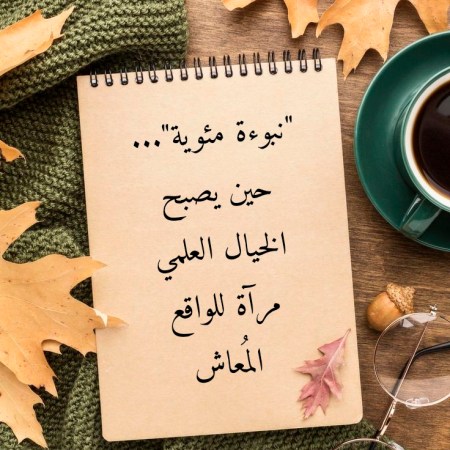 "نبوءة مئوية"...
حين يصبح
الخيال العلمي
مرآة للواقع
المُعاش